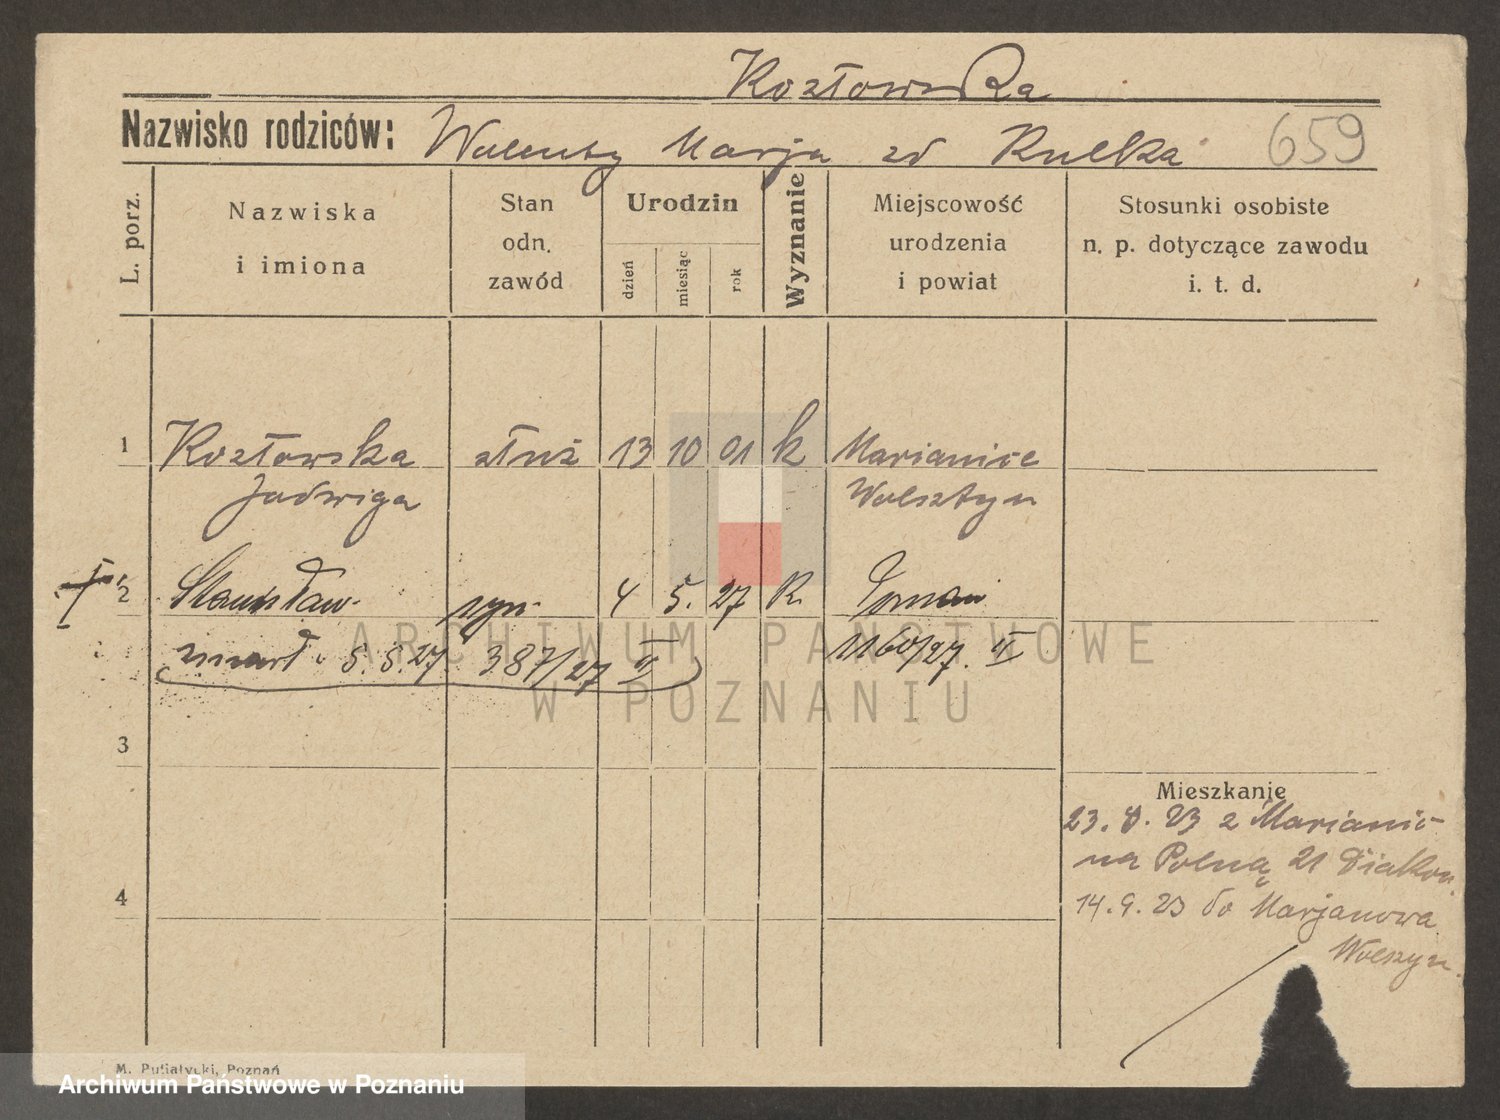 Kozłowska
Nazwisko rodziców: Walenty Marja zd Rulka 659
L. porz.
Nazwiska i imiona
Stan odn. zawód
Urodzin
dzień
miesiąc
rok
Wyznanie
Miejscowość urodzenia i powiat
Stosunki osobiste n. p. dotyczące zawodu i. t. d.
1 Kozłowska służ 13 10 01 k Marianice
Jadwiga Wolsztyn
2 Stanisław syn 4 5. 27 K.
zmarł 5.5.27 387/27 II 1160/27. II
3
4
Mieszkanie
23. 23 z Marianic
na Polną 21 Diakon.
14.9.23 do Marjanowa
Wolszyn.
M. Putiatycki, Poznań
ARCHIWUM PAŃSTWOWE
W POZNANIU
Archiwum Państwowe w Poznaniu